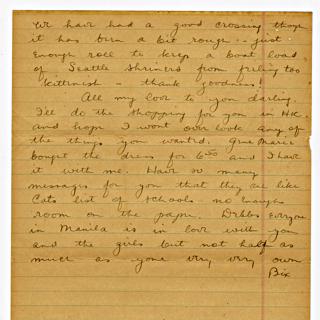 We have had a good crossing though
it has been a bit rough -- just
enough roll to keep a boat load
of Seattle Shriners from feeling too
kittenish -- thank goodness!
All my love to you darling.
I'll do the shopping for you in HK.
and hope I wont over look any of
the things you wanted. Marie
bought the dress for 6.50 and I have
it with me. Have so many
messages for you that they are like
Cats list of schools - no enough
room on the paper. Debbs Everyone
in Manila is in love with you
and the girls but not half as
much as your very, very own
Bix